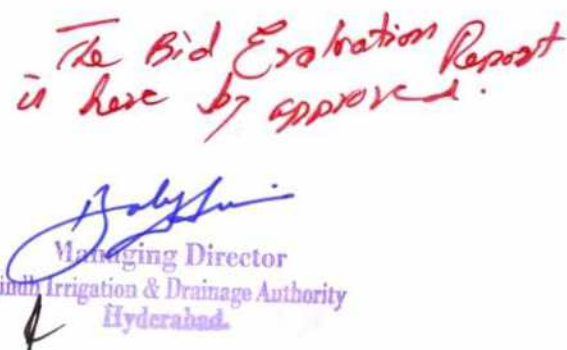 The Bid Evaluation Report
is here by approved.
Managing Director
indh Irrigation & Drainage Authority
Hyderabad.